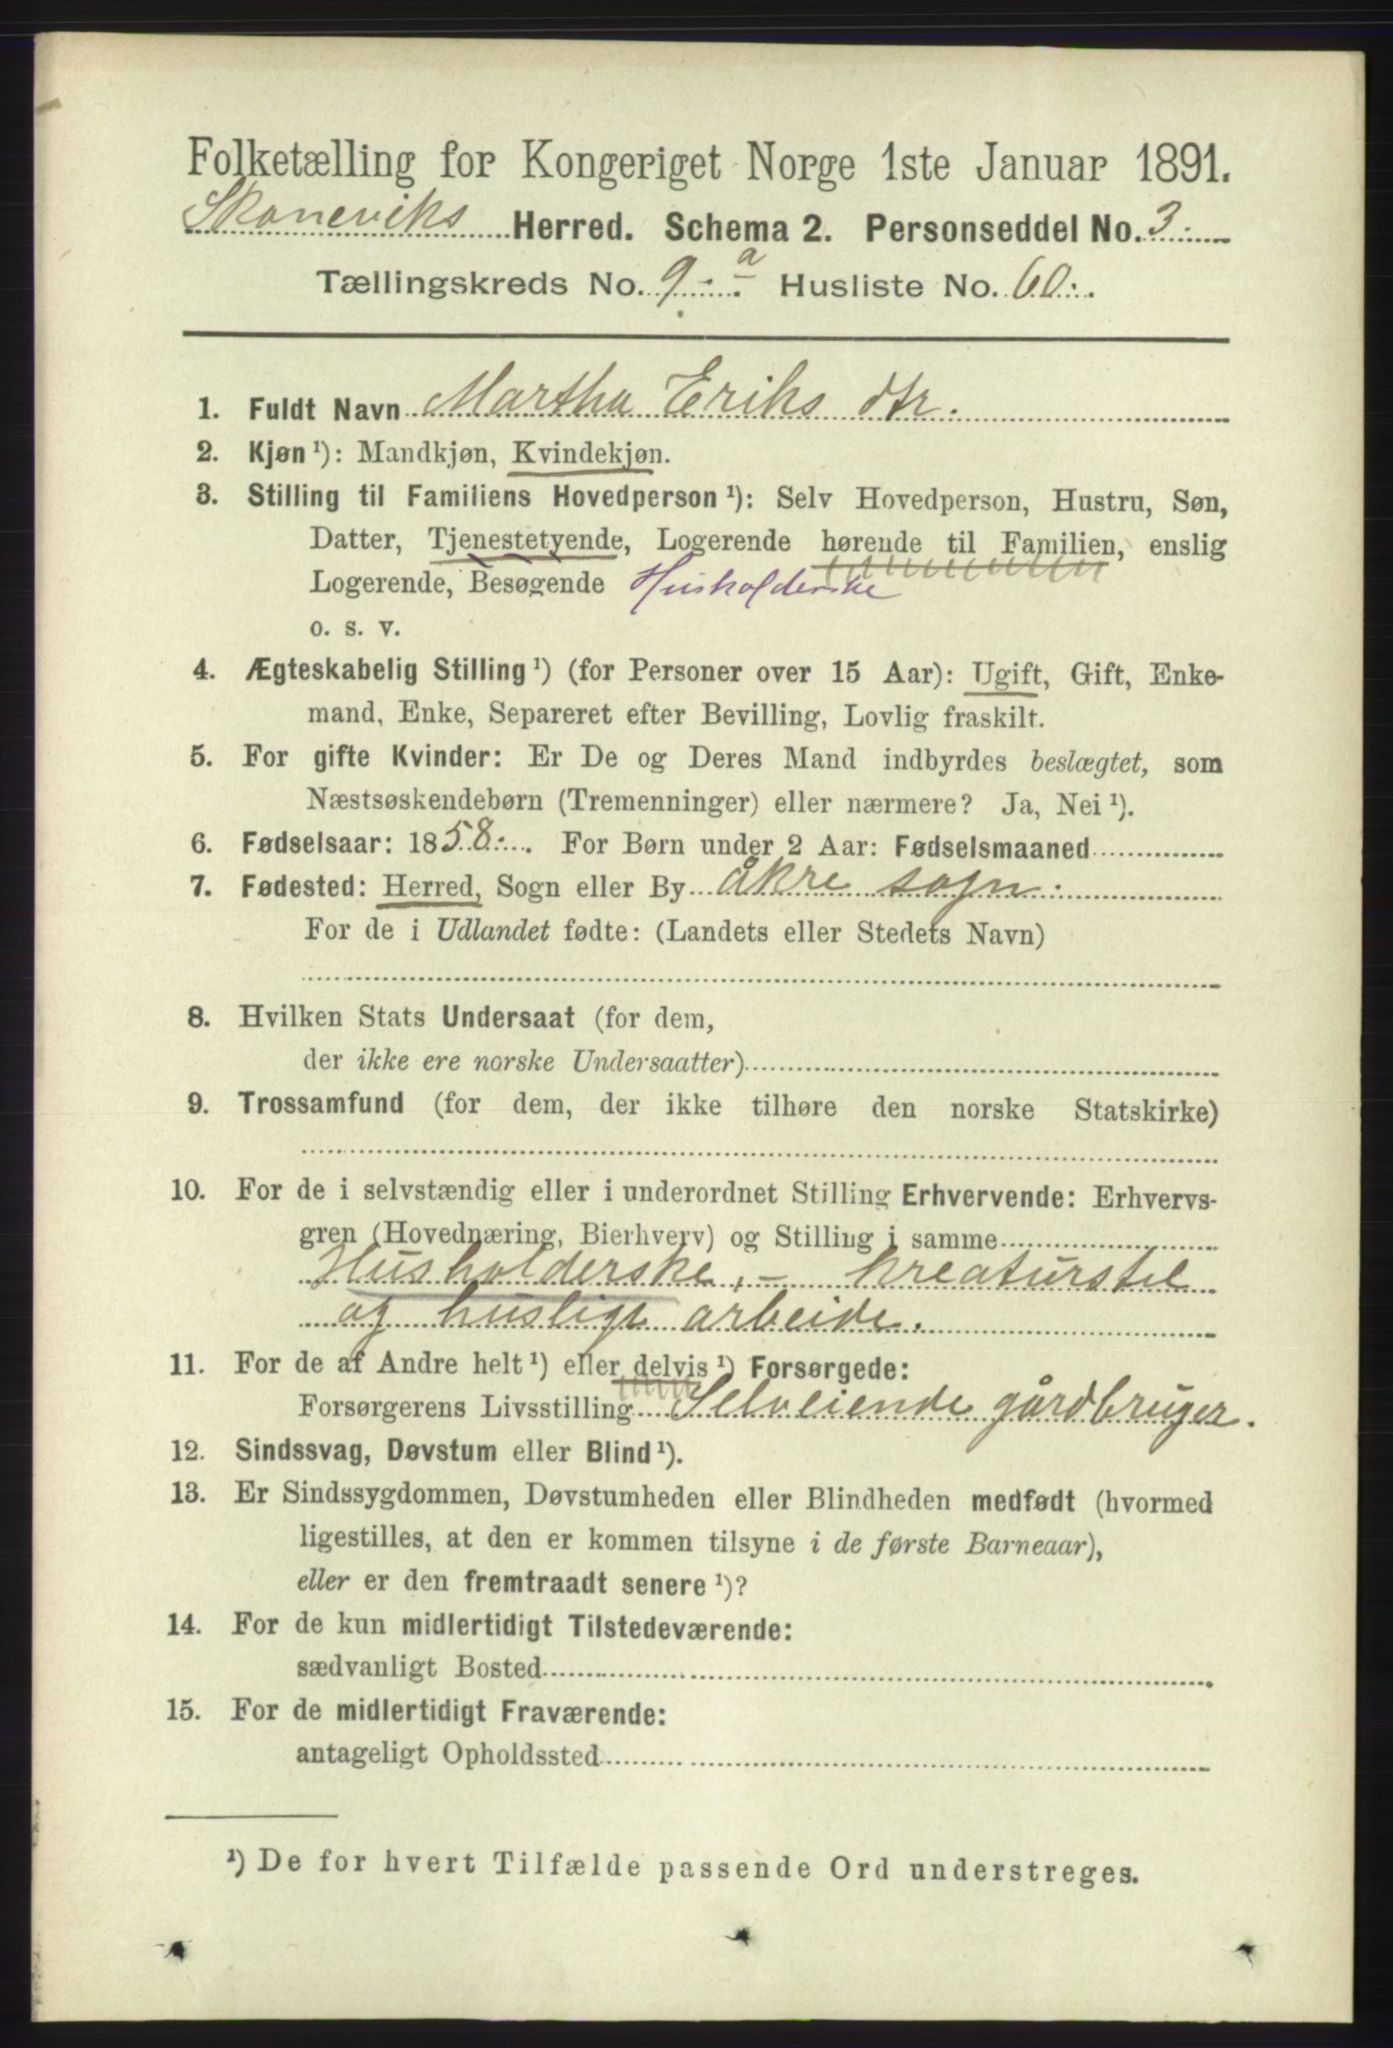 Folketælling for Kongeriget Norge 1ste Januar 1891.
Skoneviks Herred. Schema 2. Personseddel No. 3.
Tællingskreds No. 9 - a. Husliste No. 60.
1. Fuldt Navn Martha Eriks dtr.
2. Kjøn ¹): Mandkjøn, Kvindekjøn.
3. Stilling til Familiens Hovedperson ¹): Selv Hovedperson, Hustru, Søn,
Datter, Tjenestetyende, Logerende hørende til Familien, enslig
Logerende, Besøgende Husholderske
o. s. v.
4. Ægteskabelig Stilling ¹) (for Personer over 15 Aar): Ugift, Gift, Enke-
mand, Enke, Separeret efter Bevilling, Lovlig fraskilt.
5. For gifte Kvinder: Er De og Deres Mand indbyrdes beslægtet, som
Næstsøskendebørn (Tremenninger) eller nærmere? Ja, Nei ¹).
6. Fødselsaar: 1858. For Børn under 2 Aar: Fødselsmaaned
7. Fødested: Herred, Sogn eller By åkre sogn.
For de i Udlandet fødte: (Landets eller Stedets Navn)
8. Hvilken Stats Undersaat (for dem,
der ikke ere norske Undersaatter)
9. Trossamfund (for dem, der ikke tilhøre den norske Statskirke)
10. For de i selvstændig eller i underordnet Stilling Erhvervende: Erhvervs-
gren (Hovednæring, Bierhverv) og Stilling i samme
Husholderske, - kreaturstel
og husligt arbeide.
11. For de af Andre helt ¹) eller delvis ¹) Forsørgede:
Forsørgerens Livsstilling Selveiende gårdbruger.
12. Sindssvag, Døvstum eller Blind ¹).
13. Er Sindssygdommen, Døvstumheden eller Blindheden medfødt (hvormed
ligestilles, at den er kommen tilsyne i de første Barneaar),
eller er den fremtraadt senere ¹)?
14. For de kun midlertidigt Tilstedeværende:
sædvanligt Bosted
15. For de midlertidigt Fraværende:
antageligt Opholdssted
¹) De for hvert Tilfælde passende Ord understreges.